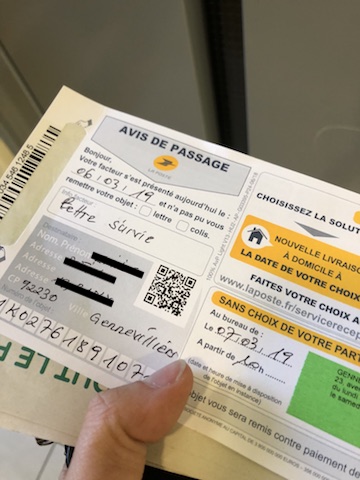 AVIS DE PASSAGE
LA POSTE
Bonjour,
Votre facteur s'est présenté aujourd'hui le :
06/03/19 et n'a pas pu vous
remettre votre objet : lettre colis.
Info facteur
Lettre Suivie
Nom, Prénom
Adresse
Adresse
Adresse
CP 92230 Ville Gennevilliers
CHOISISSEZ LA SOLUT
NOUVELLE LIVRAIS
À DOMICILE À
LA DATE DE VOTRE CHOI
FAITES VOTRE CHOIX A
www.laposte.fr/servicerecep
SANS CHOIX DE VOTRE PART
Au bureau de :
Le 07.03.19
A partir de 10h
(date et heure de mise à disposition
de l'objet en instance)
GENN
23, ave
du lundi
le samed
objet vous sera remis contre paiement de